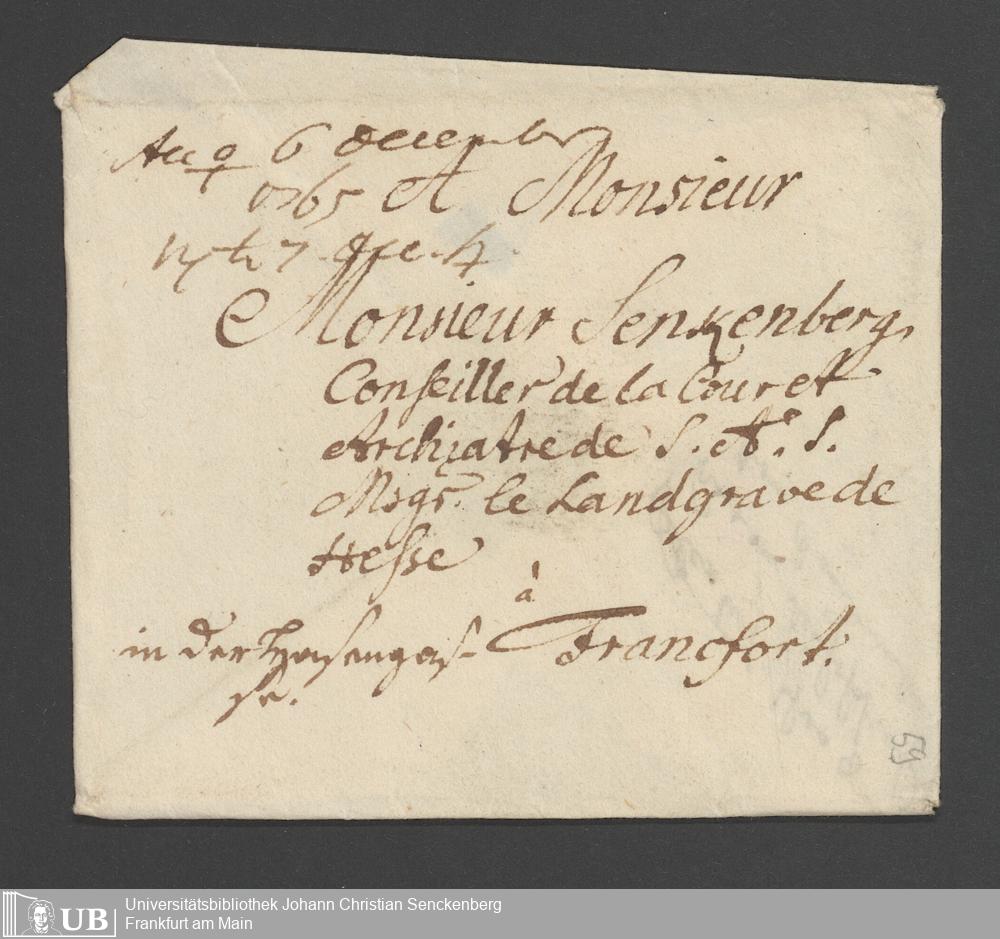 Acc ♀ 6 decembr
1765
A Monsieur
7. ♄
Monsieur Senkenberg,
Conseiller de la Cour et
Archiatre de S. A. S.
Msgr. le Landgrave de
Hesse
à
in der Hasengas- Francfort.
se.
53
UB
Universitätsbibliothek Johann Christian Senckenberg
Frankfurt am Main